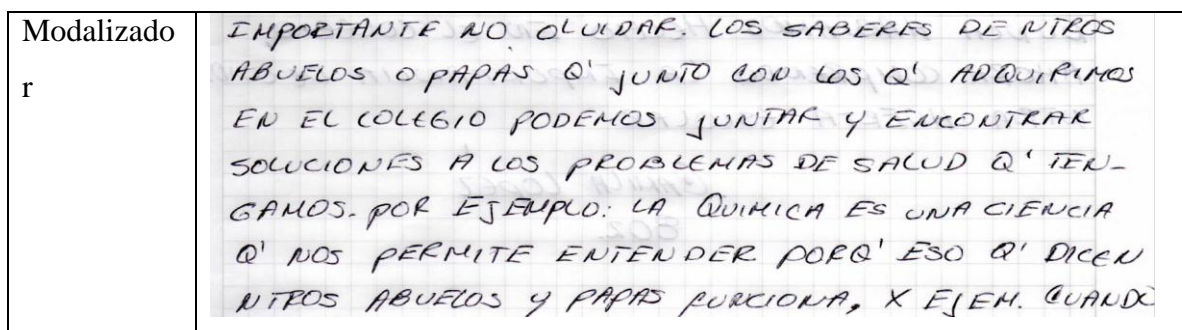 Modalizado
r
IMPORTANTE NO OLVIDAR. LOS SABERES DE NTROS
ABUELOS O PAPAS Q' JUNTO CON LOS Q' ADQUIRIMOS
EN EL COLEGIO PODEMOS JUNTAR Y ENCONTRAR
SOLUCIONES A LOS PROBLEMAS DE SALUD Q' TEN-
GAMOS. POR EJEMPLO: LA QUIMICA ES UNA CIENCIA
Q' NOS PERMITE ENTENDER PORQ' ESO Q' DICEN
NTROS ABUELOS Y PAPAS FUNCIONA, X EJEM. CUANDO